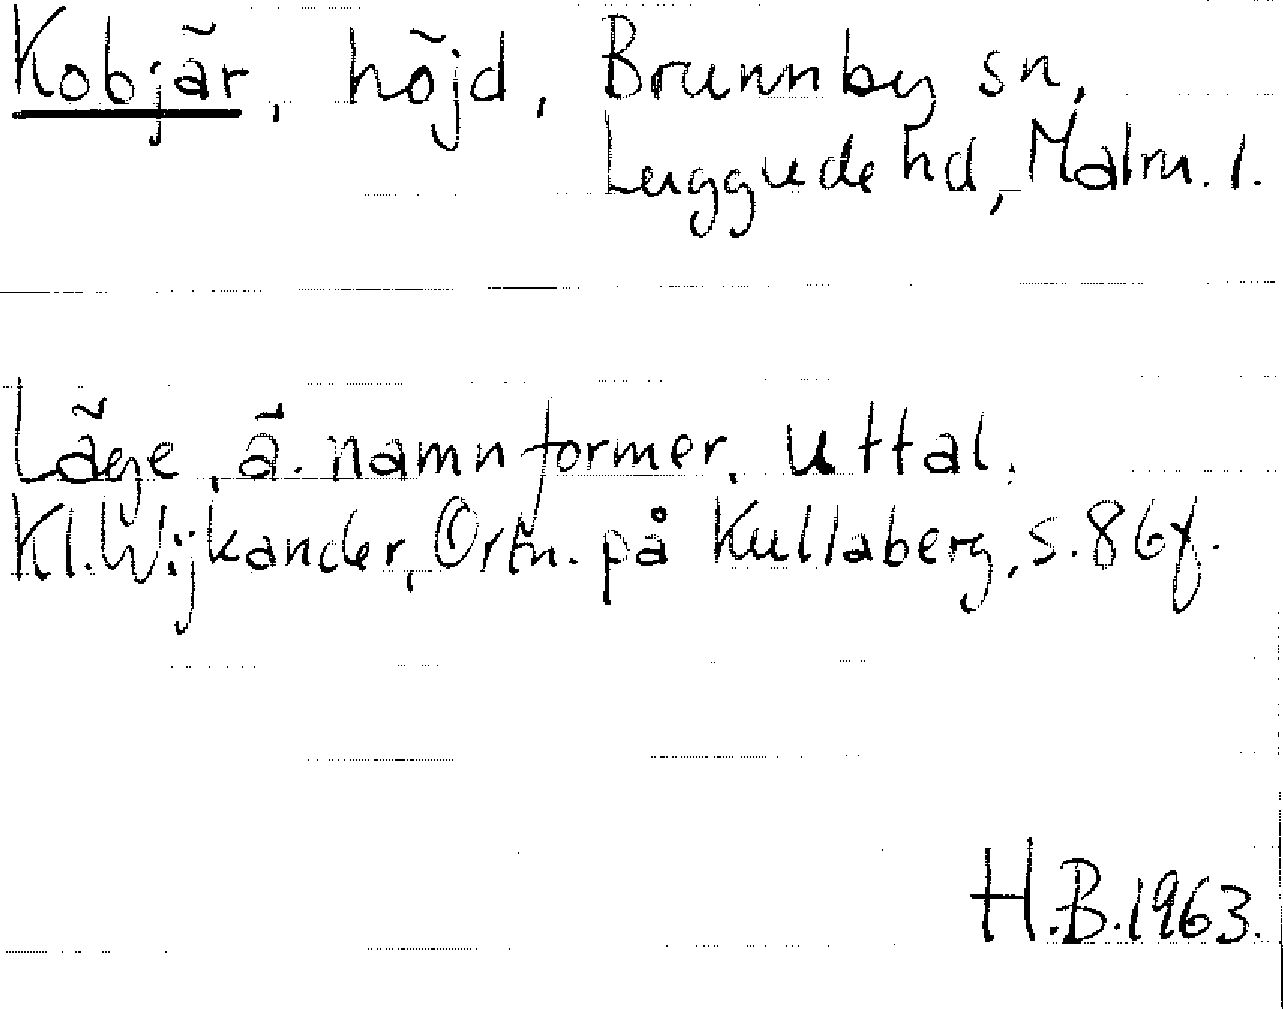 Kobjär, höjd, Brunnby sn,
Luggude hd, Malm. l.
Läge, ä. namnformer, uttal.
Kl. Wijkander, Ortn. på Kullaberg, s. 86f.
H.B. 1963.